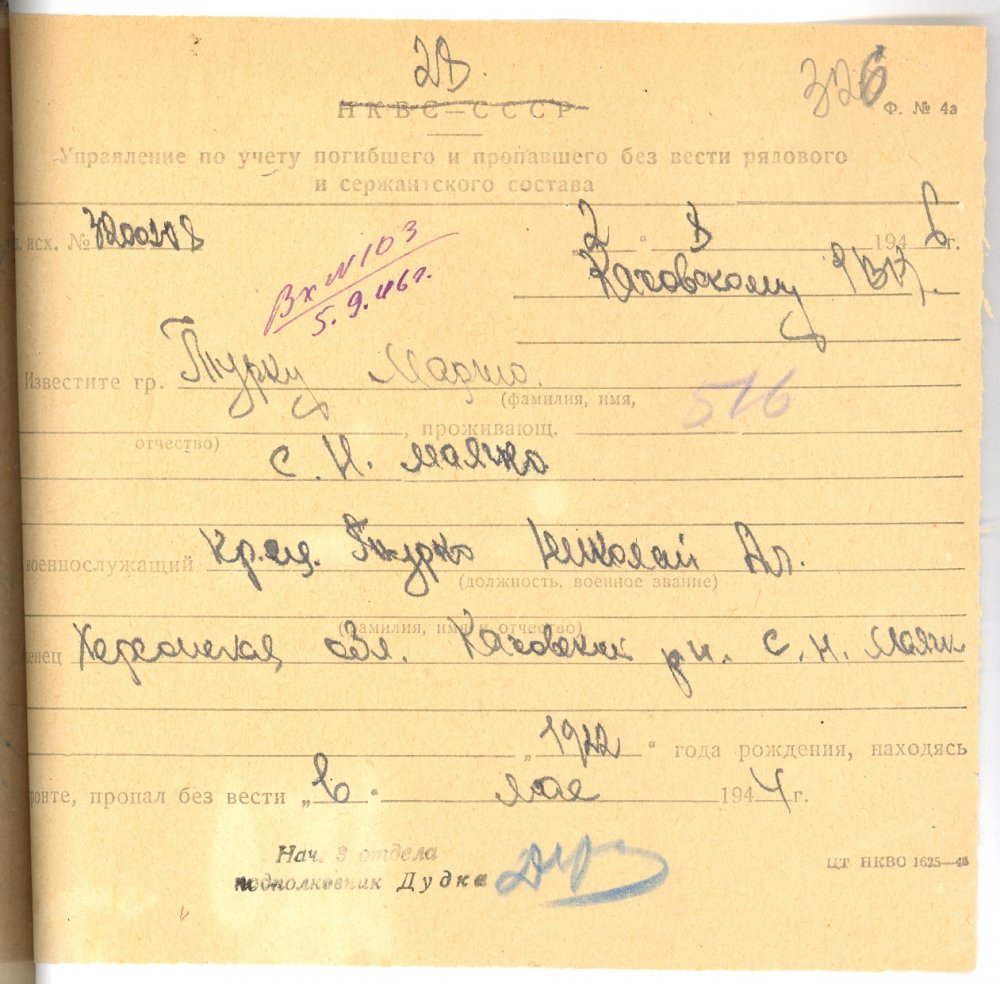 28.
326
НКВС—СССР
Ф. № 4а
Управление по учету погибшего и пропавшего без вести рядового
и сержантского состава
исх. № 3200108
2 " 8 194 6 г.
Каховскому РВК.
Вх N 103
5.9.46г.
Известите гр. Турку Марию.
(фамилия, имя,
516
отчество) , проживающ.
с. Н. Маячка
военнослужащий кр-ец. Турко Николай Ал.
(должность, военное звание)
(фамилия, имя и отчество)
Херсонская обл. Каховский р-н. с. Н. Маячк
„ 1922 “ года рождения, находясь
фронте, пропал без вести „ в “ мае 194 4 г.
Нач. 3 отдела
подполковник Дудка
ЦТ. НКВС 1625—45